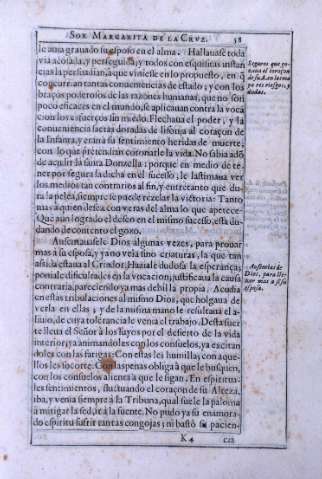 SOR MARGARITA DE LA CRVZ. 38
le ama grauado su esposo en el alma. Hallauase toda
via acosada, y perseguida, y todos con esquisitas instan
cias la persuadian, a que viniesse en lo propuesto, en q
concurrian tantas conueniencias de estado; y con los
braços poderosos de las razones humanas, que no son
poco eficaces en el mundo, se aplicauan contra la voca
cion los esfuerços sin miedo. Flechaua el poder, y la
conueniencia saetas doradas de lisonja al coraçon de
la Infanta, y era ra su sentimiento heridas de muerte,
con lo que pretendian coronarle la vida. No sabia adõ
de acudir la santa Donzella: porque en medio de te-
ner por segura la dicha en el sucesso; le lastimana ver
los medios tan contrarios al fin, y entretanto que du-
ra la pelea, siempre se puede rezelar la victoria: Tanto
mas a quien desea con veras del alma lo que apetece-
Que aun logrado el deseo en el mismo sucesso, està du-
dando de contento el gozo.
Ausentauasele Dios algunas vezes, para prouar
mas a su esposa, y ya no veìa sino criaturas, la que tan
asida estaua al Criador. Haziale dudosa la esperança;
ponìale dificultades en la vocacion; justificaua la causa
contraria, pareciendo ya mas debil la propia. Acudia
en estas tribulaciones al mismo Dios, que holgaua de
verla en ellas; y de la misma mano le resultaua el a-
liuio, de cuya tolerancia le venia el trabajo. Desta suer
te lleua el Señor à los suyos por el desierto de la vida
interior, ya animandoles con los consuelos, ya excitan
doles con las fatigas: Con estas les humilla; con aque-
llos les socorre: Con las penas obliga à que le busquen,
con los consuelos alienta à que le sigan. En espiritua-
les sentimientos, fluctuando el coraçon de su Alteza,
iba, y venia siempre a la Tribuna, qual suele la paloma
à mitigar la sed, irà la fuente. No pudo ya su enamora-
do espiritu sufrir tantas congojas; ni bastò su pacien-
K 4 cia
Seguros que go-
Ausentase de
Dios, para lle-
uar mas a si su
esposa.